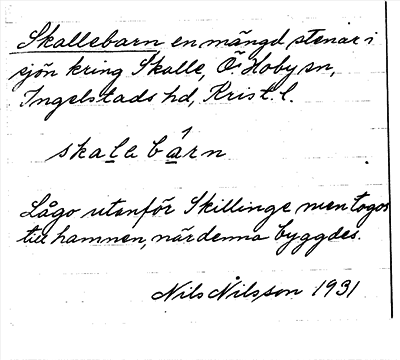 Skallebarn en mängd stenar i
sjön kring Skalle, Ö. Hoby sn,
Ingelstads hd, Krist. l.
skalebarn
Lågo utenför Skillinge men togos
till hamnen, när denna byggdes.
Nils Nilsson 1931